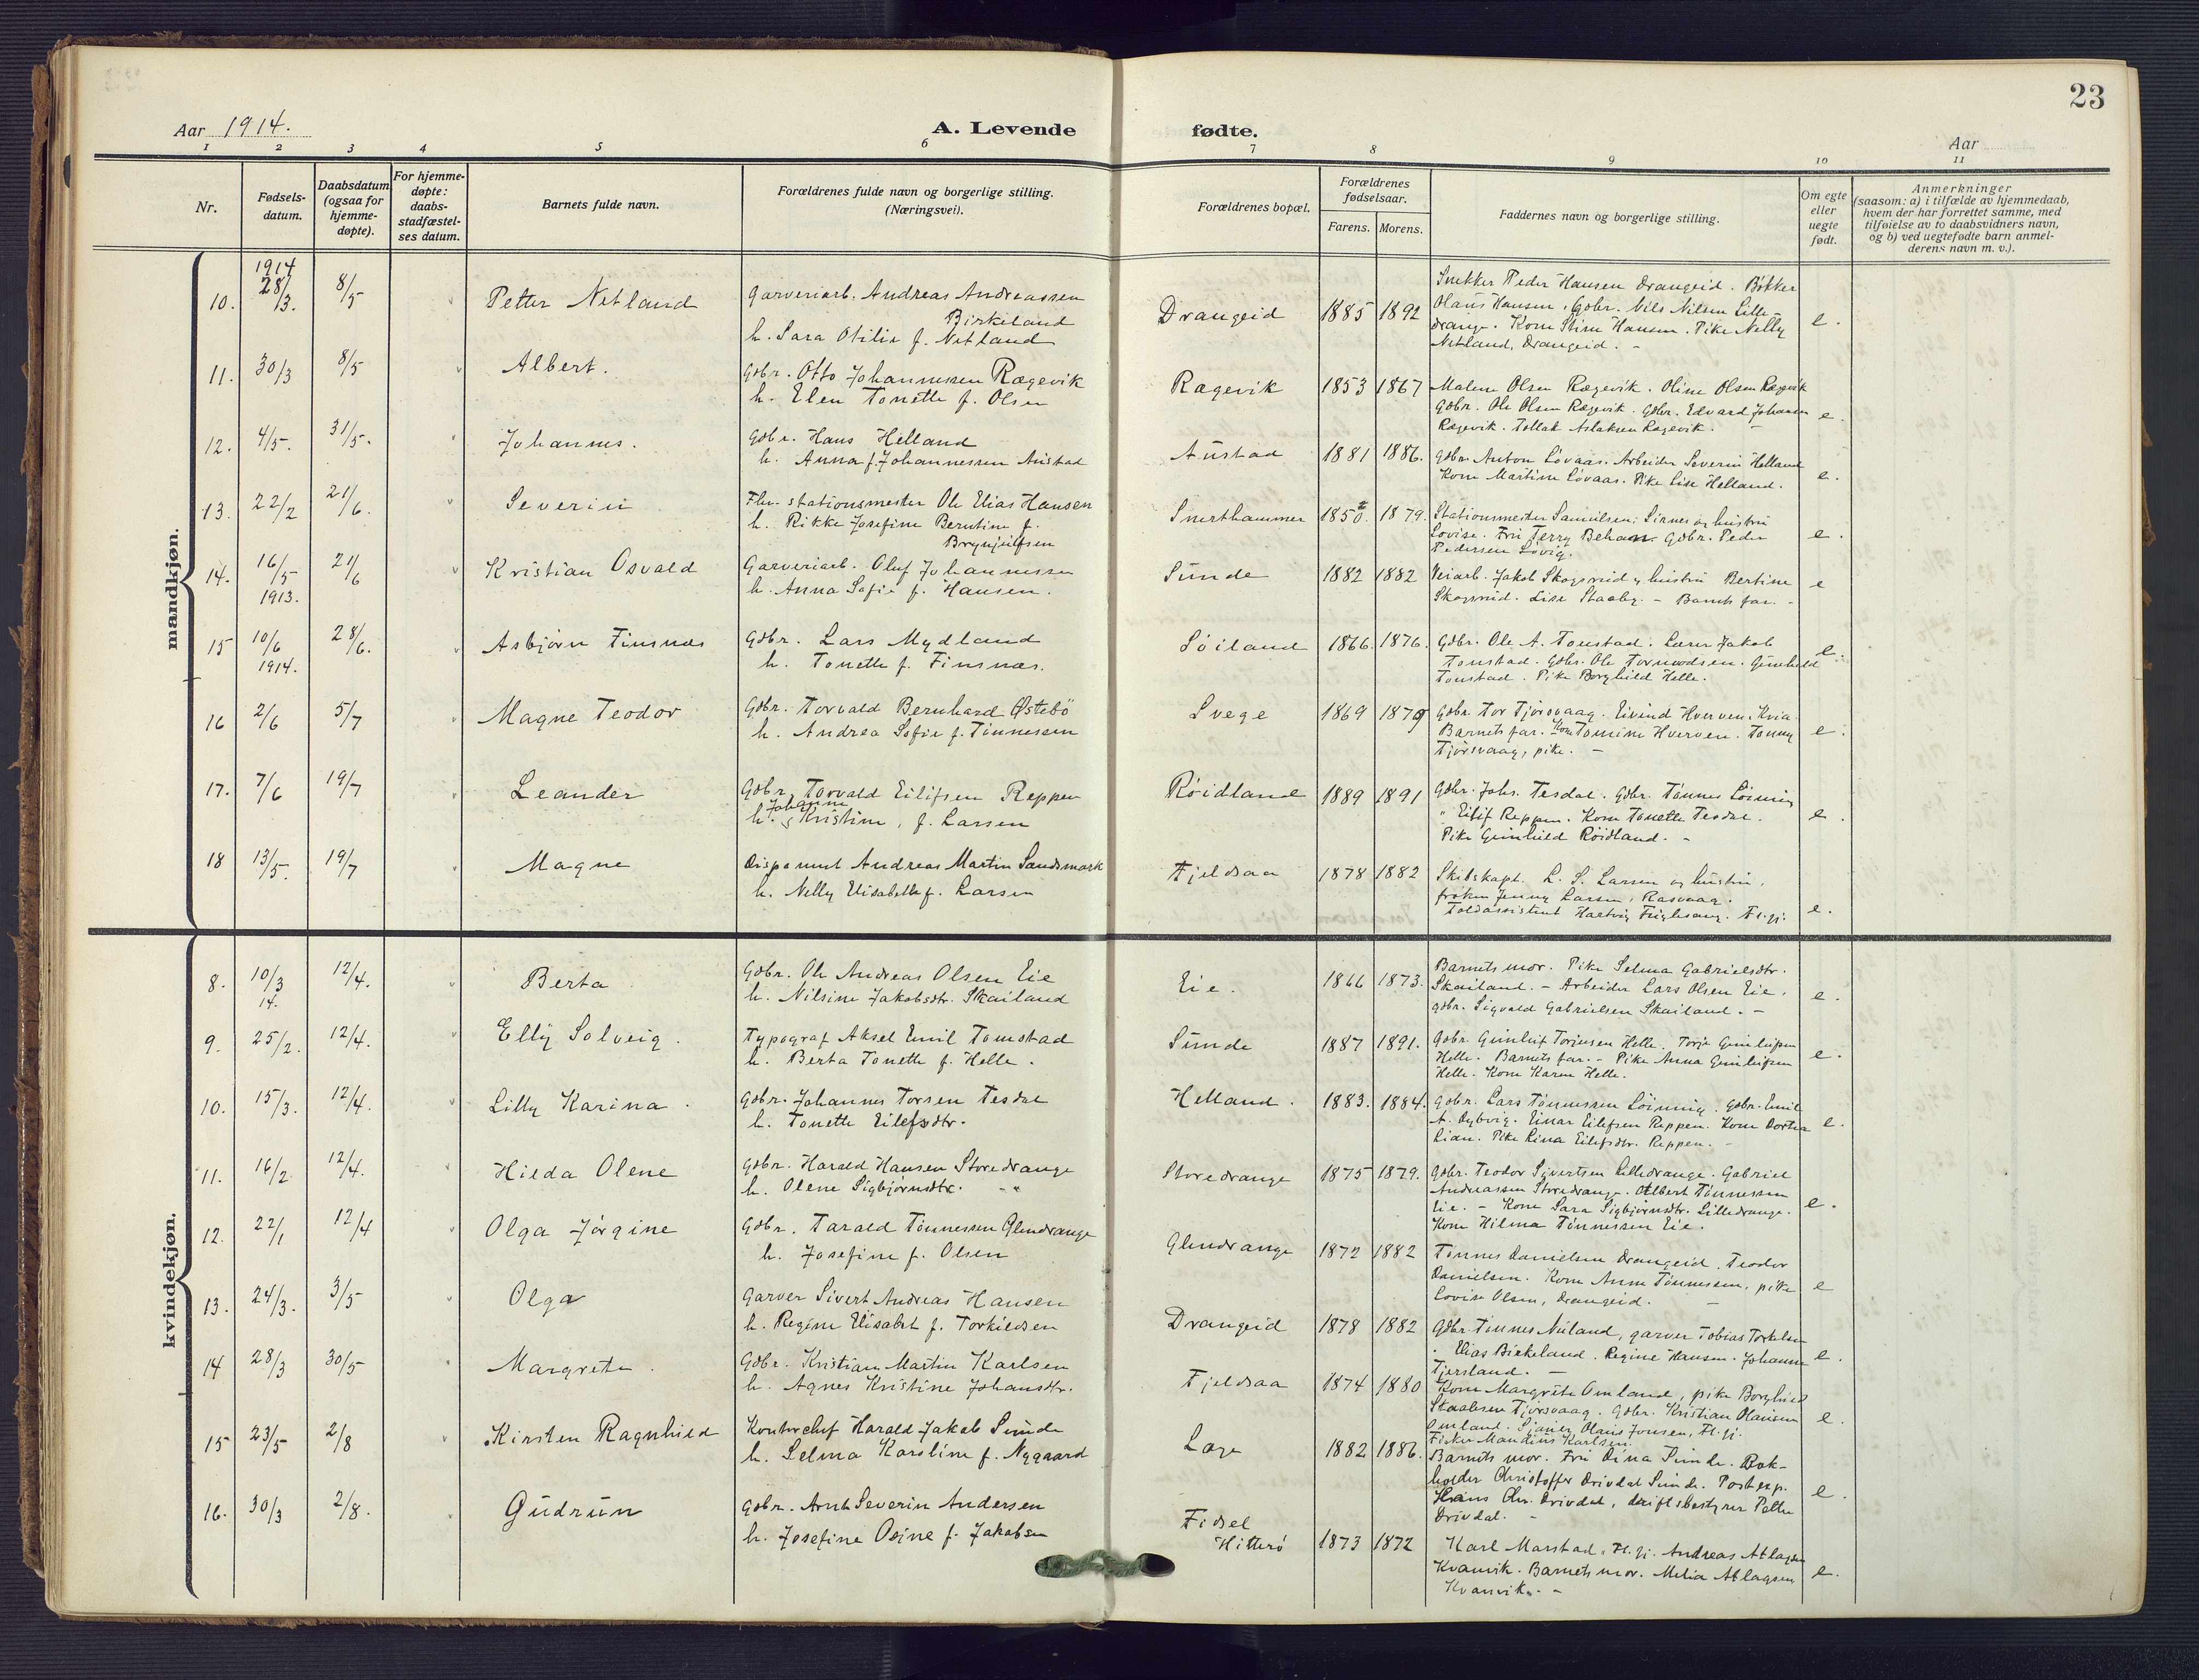 23
Aar 1914.
A. Levende fødte.
Aar
1 2 3 4 5 6 7 8 9 10 11
Nr.
Fødsels-
datum.
Daabsdatum
(ogsaa for
hjemme-
døpte).
For hjemme-
døpte:
daabs-
stadfæstel-
ses datum.
Barnets fulde navn.
Forældrenes fulde navn og borgerlige stilling.
(Næringsvei).
Forældrenes bopæl.
Forældrenes
fødselsaar.
Farens. Morens.
Faddernes navn og borgerlige stilling.
Om egte
eller
uegte
født.
Anmerkninger
(saasom: a) i tilfælde av hjemmedaab,
hvem der har forrettet samme, med
tilføielse av to daabsvidners navn,
og b) ved uegtefødte barn anmel-
derens navn m. v.).
mandkjøn.
10. 1914 28/3. 8/5 Petter Netland
Garveriarb. Andreas Andreassen
Birkeland
h. Sara Otilie f. Netland
Drangeid 1885 1892
Snekker Peder Hansen Drangeid. Bøkker
Olaus Hansen, Gdbr. Nils Nilsen Lille-
drange. Kone Stine Hansen. Pike Nelly
Netland, Drangeid. -
e.
11. 30/3 8/5 Albert.
Gdbr. Otto Johannessen Rægevik
h. Elen Tonette f. Olsen
Rægevik 1853 1867
Malene Olsen Rægevik. Oline Olsen Rægevik
Gdbr. Ole Olsen Rægevik. Gdbr. Edvard Johansen
Rægevik. Tollak Aslaksen Rægevik. -
e.
12. 4/5. 31/5. Johannes.
Gdbr. Hans Helland
h. Anna f. Johannessen Austad
Austad 1881 1886.
Gdbr. Anton Løvaas. Arbeider Severin Helland
Kone Martine Løvaas. Pike Lise Helland.
e.
13. 22/2 21/6. Severin
Fhv. stationsmester Ole Elias Hansen
h. Rikke Josefine Berntine f.
Brynjulfsen
Snerthammer 1850. 1879.
Stationsmester Samuelsen, Sirnes og hustru
Lovise. Fru Terry Behan. Gdbr. Peder
Pedersen Løvig.
e.
14. 16/5 21/6 Kristian Osvald
Garveriarb. Oluf Johannessen
h. Anna Sofie f. Hansen.
Sunde 1882 1882
Veiarb. Jakob Skogsrud og hustru Bertine
Skogsrud. Lise Staaby. - Barnets far. -
e
15 1913. 10/6 28/6. Asbjørn Finsnæs
Gdbr. Lars Mydland
h. Tonette f. Finsnæs.
Løiland 1866. 1876.
Gdbr. Ole A. Tonstad. Lærer Jakob
Tonstad. Gdbr. Ole Tormodsen. Gunhild
Tonstad. Pike Borghild Helle.
e.
16 1914. 2/6 5/7 Magne Teodor
Gdbr. Torvald Bernhard Østebö
h. Andrea Sofie f. Tönnessen
Svege 1869 1879
Gdbr. Tor Tjörsvaag. Eivind Hverven, Kvia
Barnets far. Kone Tomine Hverven. Tonny
Tjörsvaag, pike. -
e.
17. 7/6 19/7 Leander
Gdbr. Torvald Eilifsen Reppen
h. Johanne Kristine, f. Larsen
Røidland 1889 1891
Gdbr. Johs. Tesdal. Gdbr. Tönnes Løining
" Eilif Reppen. Kone Tonette Tesdal.
Pike Gunhild Røidland. -
e.
18 13/5. 19/7 Magne
Disponent Andreas Martin Sandsmark
h. Nelly Elisabeth f. Larsen
Fjeldsaa 1878 1882
Skibskapt. L. S. Larsen og hustru,
frøken Jenny Larsen, Rasvaag.
Toldassistent Hartvig Fuglesang. Fl.gj.
e.
kvindekjøn.
8. 10/3 14. 12/4. Berta
Gdbr. Ole Andreas Olsen Eie
h. Nilsine Jakobsdtr. Skailand
Eie. 1866 1873.
Barnets mor. Pike Selma Gabrielsdtr.
Skailand. - Arbeider Lars Olsen Eie.
gdbr. Sigvald Gabrielsen Skailand. -
e.
9. 25/2. 12/4. Elly Solveig.
Typograf Aksel Emil Tomstad
h. Berta Tonette f. Helle.
Sunde 1887 1891.
Gdbr. Gunleif Torjusen Helle. Torje Gunleifsen
Helle. Barnets far. - Pike Anna Gunleifsen
Helle. Kone Karen Helle.
e.
10. 15/3. 12/4. Lilly Karina.
Gdbr. Johannes Torsen Tesdal
h. Tonette Eilefsdtr.
Helland. 1883. 1884.
Gdbr. Lars Tönnessen Løining. Gdbr. Emil
A. Dybvig. Einar Eilefsen Reppen. Kone Dortea
Lian. Pike Lina Eilefsdtr. Reppen. -
e.
11. 16/2. 12/4. Hilda Olene
Gdbr. Harald Hansen Storedrange
h. Olene Sigbjørnsdtr. - "
Storedrange 1875 1879.
Gdbr. Teodor Sivertsen Lilledrange. Gabriel
Andreassen Storedrange. Albert Tönnessen
Eie. - Kone Sara Sigbjørnsdtr. Lilledrange.
Kone Hilma Tönnessen Eie.
e.
12. 22/1 12/4 Olga Jörgine
Gdbr. Tarald Tönnessen Glendrange
h. Josefine f. Olsen
Glendrange 1872 1882
Tönnes Danielsen Drangeid. Teodor
Danielsen. Kone Anne Tönnessen, pike
Lovise Olsen, Drangeid. -
e
13. 24/3. 3/5 Olga
Garver Sivert Andreas Hansen
h. Regine Elisabet f. Torkildsen
Drangeid 1878 1882
Gdbr. Tönnes Nuland, garver Tobias Torkelsen
Elias Birkeland. Regine Hansen. Johanne
Tjersland. -
e.
14 28/3 30/5 Margrete.
Gdbr. Kristian Martin Karlsen
h. Agnes Kristine Johansdtr.
Fjeldsaa 1874 1880
Kone Margrete Omland, pike Borghild
Staalesen Tjørsvaag. Gdbr. Kristian Olausen
Omland. Sjömen Olaus Jonsen, Fl.gj.
Fisker Mandius Karlsen.
e.
15 23/5 2/8 Kirsten Ragnhild
Kontorchef Harald Jakob Sunde
h. Selma Karoline f. Nygaard
Loge 1882 1886.
Barnets mor. Fru Dina Sunde. Bok-
holder Christoffer Drivdal Sunde. Postexp.
Hans Chr. Drivdal, driftsbestyrer Petter
Drivdal. -
e.
16. 30/3 2/8. Gudrun
Gdbr. Arnt Severin Andersen
h. Josefine Osine f. Jakobsen
Fidsel
Hitterö 1873 1872
Karl Marstad. Fl.gj. Andreas Atlagsen
Kvanvik. Barnets mor. Melia Atlagsen
Kvanvik. -
e.